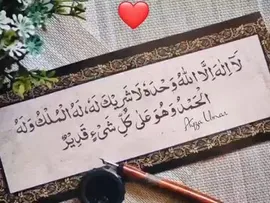 لَا اِلٰهَ اِلَّا اللّٰهُ وَحْدَهٗ لَا شَرِيْكَ لَهٗ، لَهُ الْمُلْكُ وَلَهُ
الْحَمْدُ وَهُوَ عَلٰى كُلِّ شَيْءٍ قَدِيْرٌ